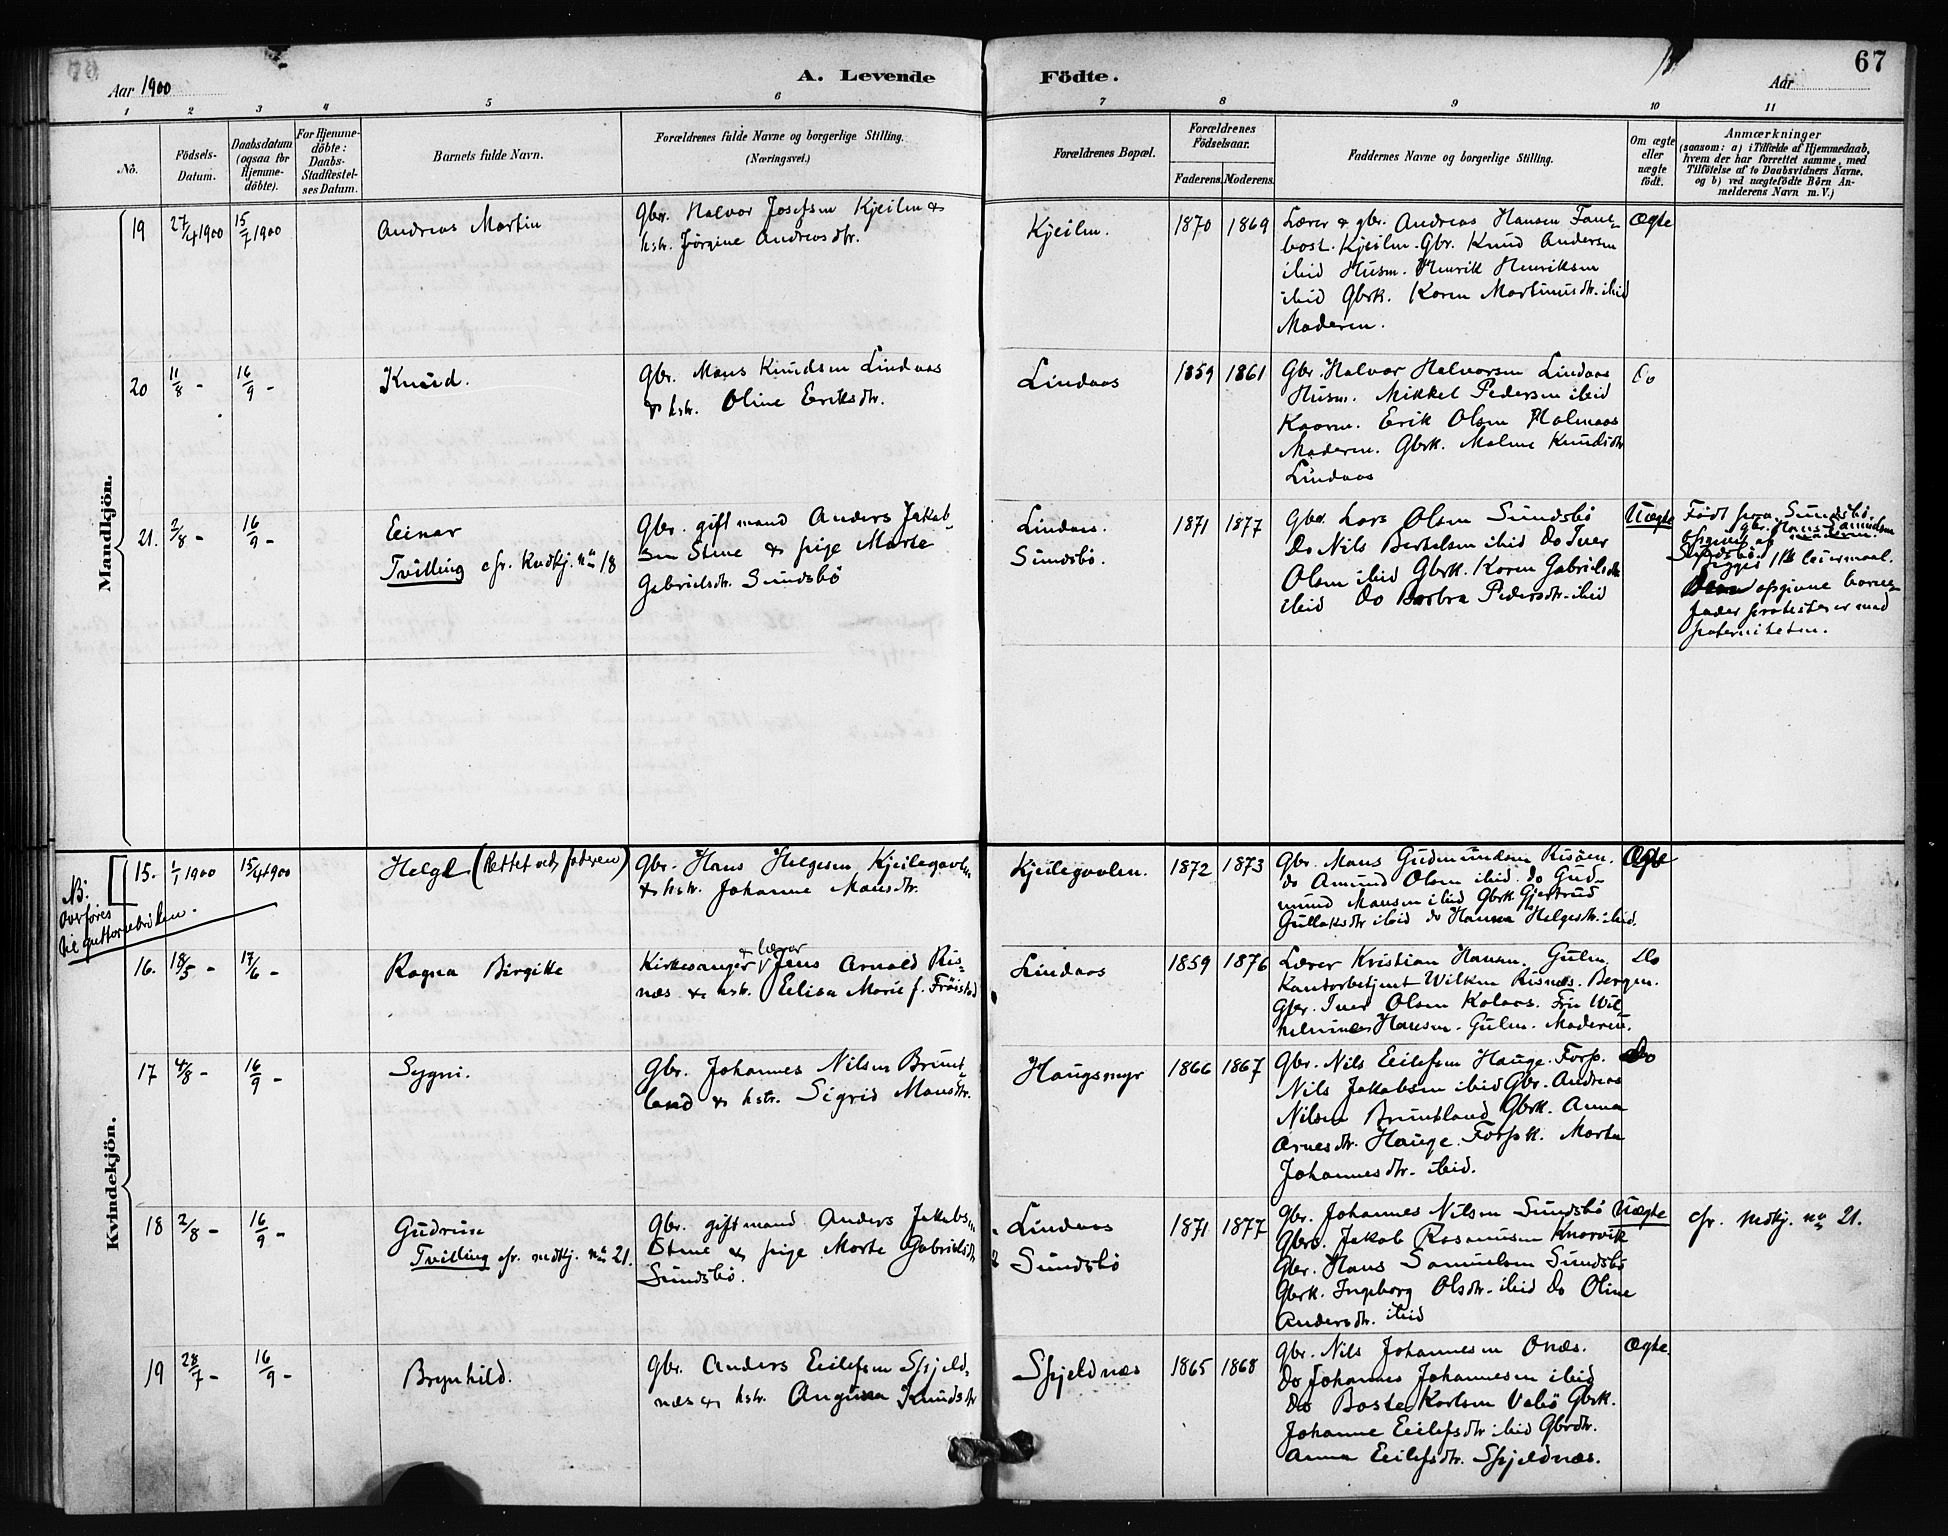 67
Aar 1900
A. Levende
Födte.
Aar
1 2 3 4 5 6 7 8 9 10 11
No.
Födsels-
Datum.
Daabsdatum
(ogsaa for
Hjemme-
döbte).
For Hjemme-
döbte:
Daabs-
Stadfæstel-
ses Datum.
Barnets fulde Navn.
Forældrenes fulde Navne og borgerlige Stilling.
(Næringsvei.)
Forældrenes Bopæl.
Forældrenes
Födselsaar.
Faderens.
Moderens.
Faddernes Navne og borgerlige Stilling.
Om ægte
eller
uægte
födt.
Anmærkninger
(saasom: a) i Tilfælde af Hjemmedaab,
hvem der har forrettet samme, med
Tilföielse af to Daabsvidners Navne,
og b) ved uægtefödte Börn An-
melderens Navn m. V.)
Mandkjön.
19
27/4 1900
15/7 1900
Andreas Martin
Gbr. Halvor Josefsen Kjeilen &
hstr. Jörgine Andreasdtr.
Kjeilen.
1870
1869
Lærer & gbr. Andreas Hansen Fane-
bost. Kjeilen. Gbr. Knud Andersen
ibid Husm. Henrik Henriksen
ibid Gbrk. Karen Martinusdtr. ibid
Moderen.
Ægte
20
11/8 -
16/9 -
Knud.
Gbr. Mons Knudsen Lindaas
& hstr. Oline Eriksdtr.
Lindaas
1859
1861
Gbr. Halvor Halvorsen Lindaas
Husm. Mikkel Pedersen ibid
Kaarm. Erik Olsen Holmaas
Moderen. Gbrk. Malene Knudsdtr
Lindaas
Do
21.
2/8 -
16/9 -
Einar
Tvilling cfr. kvdkj. no 18
Gbr. gift mand Anders Jakob-
sen Stene & pige Marte
Gabrielsdtr. Sundsbö
Lindaas.
Sundsbö.
1871
1877
Gbr. Lars Olsen Sundsbö
Do Nils Bertelsen ibid Do Iver
Olsen ibid Gbrk. Karen Gabrielsdtr
ibid Do Barbra Pedersdtr. ibid
Uægte
Födt paa Sundsbö.
Opgivet af gbr. Hans Samuelsen
Sundsbö. Begges 1ste leiermaal.
Den opgivne barne-
fader protesterer mod
paterniteten.
Kvindekjön.
NB:
Overföres
til gutterubriken.
15.
1/1 1900
15/4 1900
Helge (Rettet ved faderen)
Gbr. Hans Helgesen Kjeilegavlen
& hstr. Johanne Monsdtr.
Kjeilegavlen.
1872
1873
Gbr. Mons Gudmundsen Risöen.
do Amund Olsen ibid. do Gud-
mund Monsen ibid Gbrk. Gjertrud
Gullaksdtr ibid do Hanna Helgesdtr. ibid.
Ægte
16.
18/5 -
17/6 -
Ragna Birgitte
Kirkesanger & lærer Jens Arnold Ris-
næs & hstr. Elisa Marie f. Fröistad
Lindaas
1859
1876
Lærer Kristian Hansen. Gulen.
Kontorbetjent Wilken Risnæs. Bergen.
Gbr. Iver Olsen Kolaas. Fru Wil-
helmine Hansen. Gulen. Moderen.
Do
17
4/8 -
16/9 -
Sygni.
Gbr. Johannes Nilsen Brunt-
land & hstr. Sigrid Monsdtr.
Haugsmyr
1866
1867
Gbr. Nils Eilefsen Hauge. Forp.
Nils Jakobsen ibid Gbr. Andreas
Nilsen Bruntland Gbrk. Anna
Arnesdtr. Hauge. Forpk. Marta
Johannesdtr. ibid.
Do
18
2/8 -
16/9 -
Gudrun
Tvilling cfr. mdkj. no 21.
Gbr. gift mand Anders Jakobsen
Stene & pige Marte Gabrielsdtr
Sundsbö.
Lindaas
Sundsbö
1871
1877
Gbr. Johannes Nilsen Sundsbö
Gbr. Jakob Rasmussen Knarvik
Gbr. Hans Samuelsen Sundsbö
Gbrk. Ingeborg Olsdtr. ibid Do Oline
Andersdtr. ibid
Uægte
cfr. mdkj. no 21.
19
28/7 -
16/9 -
Brynhild.
Gbr. Anders Eilefsen Spjeld-
næs & hstr. Anguna Knudsdtr
Spjeldnæs
1865
1868
Gbr. Nils Johannesen Onæs.
Do Johannes Johannesen ibid
Do Baste Karlsen Vabö Gbrk.
Johanne Eilefsdtr ibid Gbrdtr.
Anna Eilefsdtr. Spjeldnæs.
Ægte.